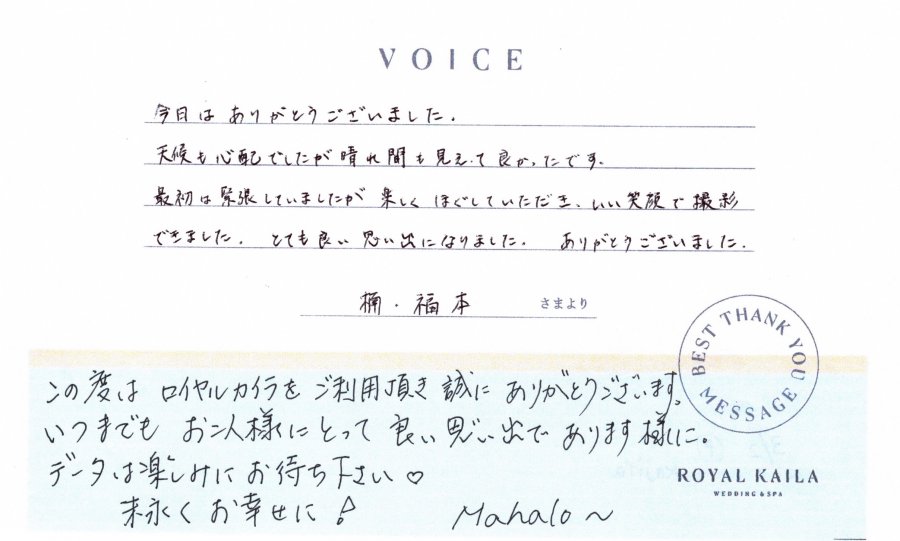 VOICE
今日は ありがとうございました。
天候も心配でしたが晴れ間も見えて良かったです。
最初は緊張していましたが 楽しく ほぐしていただき、いい笑顔で撮影
できました。 とても良い思い出になりました。 ありがとうございました。
・福本 さまより
BEST THANK YOU MESSAGE
この度は ロイヤルカイラを ご利用頂き 誠に ありがとうございます。
いつまでも お二人様にとって 良い思い出で あります様に。
データは楽しみに お待ち下さい♡
末永く お幸せに!
Mahalo〜
ROYAL KAILA
WEDDING & SPA